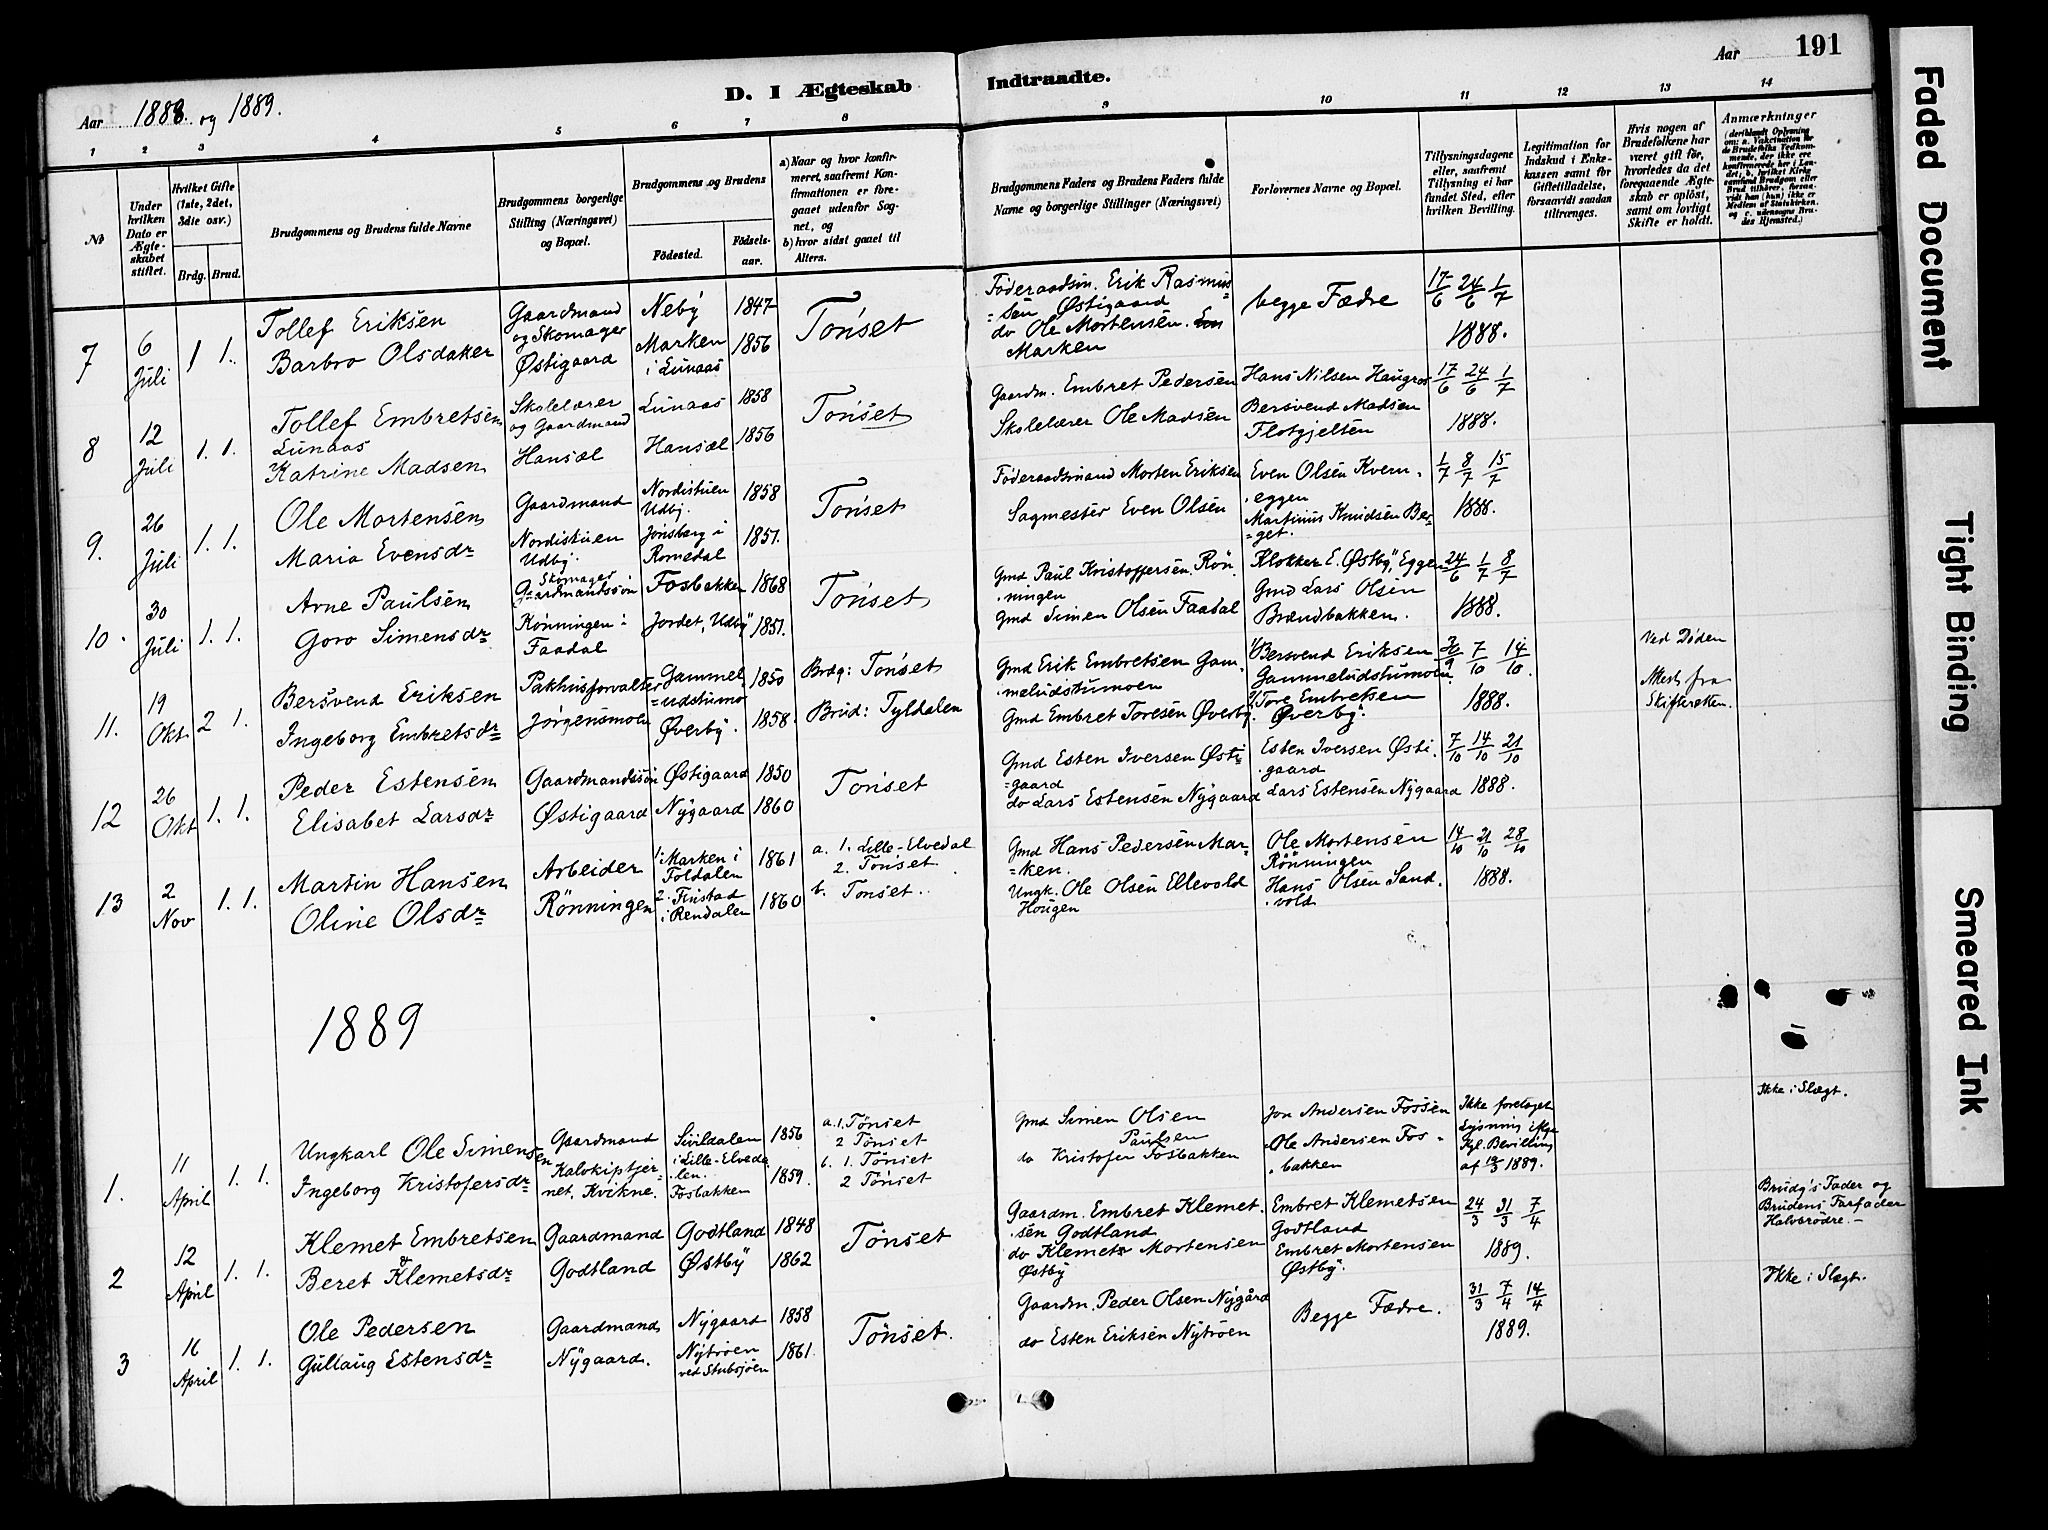 Aar 1888. og 1889.
D. I Ægteskab Indtraadte.
Aar 191
1 2 3 4 5 6 7 8 9 10 11 12 13 14
№
Under hvilken Dato er Ægteskabet stiftet.
Hvilket Gifte (1ste, 2det, 3die osv.)
Brdg. Brud.
Brudgommens og Brudens fulde Navne
Brudgommens borgerlige Stilling (Næringsvei) og Bopæl.
Brudgommens og Brudens
Födested. Födselsaar.
a) Naar og hvor konfirmeret, saafremt Konfirmationen er foregaaet udenfor Sognet, og
b) hvor sidst gaaet til Alters.
Brudgommens Faders og Brudens Faders fulde Navne og borgerlige Stillinger (Næringsvei)
Forlovernes Navne og Bopæl.
Tillysningsdagene eller, saafremt Tillysning ei har fundet Sted, efter hvilken Bevilling.
Legitimation for Indskud i Enkekassen samt for Giftetilladelse, forsaavidt saadan tiltrænges.
Hvis nogen af Brudefolkene har været gift før, hvorledes da det foregaaende Ægteskab er opløst, samt om lovligt Skifte er holdt.
Anmærkninger
7 6 Juli 1 1. Tollef Eriksen
Barbro Olsdaker
Gaardmand og Skomager Østigaard
Neby 1847
Marken i Lunaas 1856
Tønset
Føderaadsm. Erik Rasmus=sen Østigaard
do Ole Mortensen Marken
begge Fædre
17/6 24/6 1/7 1888.
8 12 Juli 1. 1. Tollef Embretsen Lunaas
Katrine Madsen
Skolelærer og Gaardmand Hansæl
Lunaas 1858
Hansæl 1856
Tønset
Gaardm. Embret Pedersen
Skolelærer Ole Madsen
Hans Nilsen Haugros
Bersvend Madsen Flotgjelten
17/6 24/6 1/7 1888.
9. 26 Juli 1. 1. Ole Mortensen
Maria Evensdr
Gaardmand Nordistuen Udby.
Nordistuen Udby. 1858
Jønsberg i Romedal 1851.
Tønset
Føderaadsmand Morten Eriksen
Sagmester Even Olsen
Even Olsen Kvern.eggen
Martinus Knudsen Ber=get.
1/7 8/7 15/7 1888.
10. 30 Juli 1. 1. Arne Paulsen
Goro Simensdr
Skomager Gaardmandssøn Rønningen i Faadal
Fosbakken 1868
Jordet, Udby 1851.
Tønset
Gmd Paul Kristoffersen Røn.ningen
Gmd Simen Olsen Faadal
Klokker E. Østby, Eggen
Gmd Lars Olsen Brændbakken.
24/6 1/7 8/7 1888.
11. 19 Okt 2 1. Bersvend Eriksen
Ingeborg Embretsdr
Pakhusforvalter Jørgensmoen
Gammel=udstumo 1850
Øverby. 1858.
Brdg: Tønset
Brud: Tyldalen
Gmd Erik Embretsen Gam.meludstumoen
Gmd Embret Toresen Øverby
1) Bersvend Eriksen Gammeludstumoen.
2) Tore Embretsen Øverby.
30/9 7/10 14/10 1888.
Ved Døden
Attest fra Skifteretten.
12 26 Okt 1. 1. Peder Estensen
Elisabet Larsdr
Gaardmandssøn Østigaard
Østigaard 1850
Nygaard 1860
Tønset
Gmd Esten Iversen Østi=gaard
do Lars Estensen Nygaard
Esten Iversen Østi.gaard
Lars Estensen Nygaard
7/10 14/10 21/10 1888.
13 2 Nov 1. 1. Martin Hansen
Oline Olsdr
Arbeider Rønningen
1. Marken i Foldalen 1861
2. Finstad i Rendalen 1860
a. 1. Lille-Elvedal
2. Tønset.
b. Tønset.
Gmd Hans Pedersen Mar=ken.
Ungk. Ole Olsen Ellevold Hougen
Ole Mortensen Rønningen
Hans Olsen Sand.vold
14/10 21/10 28/10 1888.
1889
1. 11 April 1. 1. Ungkarl Ole Simensen
Ingeborg Kristofersdr
Gaardmand Kalvkiptjernet, Kvikne.
Sivildalen i Lille-Elvedalen. 1856
Fosbakken 1859.
a. 1. Tønset
2 Tønset
b. 1. Tønset
2 Tønset
Gmd Simen Olsen
do Kristofer Paulsen Fosbakken
Jon Andersen Fossen
Ole Andersen Fos.bakken
Ikke foretaget Lysning ifølge Kgl. Bevilling af 19/3 1889.
Ikke i Slægt.
2 12 April 1. 1. Klemet Embretsen
&
Beret Klemetsdr
Gaardmand Godtland
Godtland 1848
Østby 1862
Tønset
Gaardm. Embret Klemet.sen Godtland
do Klemet Mortensen Østby
Embret Klemetsen Godtland
Embret Mortensen Østby.
24/3 31/3 7/4 1889.
Brudg's Fader og Brudens Farfader Halvbrødre.-
3 16 April 1. 1. Ole Pedersen
Gullaug Estensdr
Gaardmand Nygaard.
Nygaard 1858
Nytrøen ved Stubsjøen 1861
Tønset.
Gaardm. Peder Olsen Nygård
do Esten Eriksen Nytrøen
Begge Fædre.
31/3 7/4 14/4 1889.
Ikke i Slægt.
Faded Document
Tight Binding
Smeared Ink